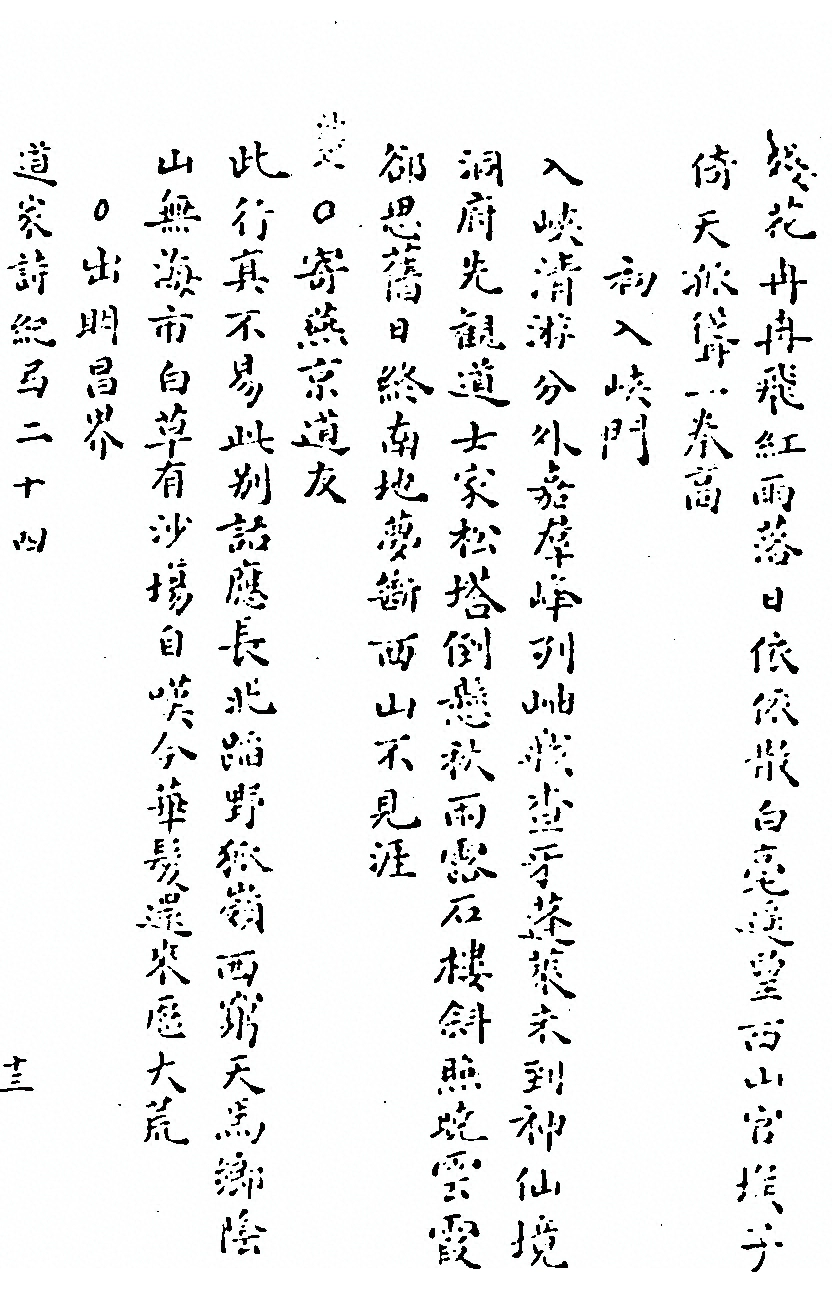 殘花冉冉飛紅雨落日依依散白毫遥望西山官堠子
倚天孤聳一拳高
初入峽門
入峽清游分外嘉群峰列岫戟查牙蓬萊未到神仙境
洞府先觀道士家松塔倒懸秋雨露石樓斜照晚雲霞
卻思舊日終南地夢斷西山不見涯
○寄燕京道友
此行真不易此别話應長北蹈野狐嶺西窮天馬鄉陰
山無海市白草有沙場自嘆今華髮還來歷大荒
○出明昌界
道家詩紀局二十四
十三